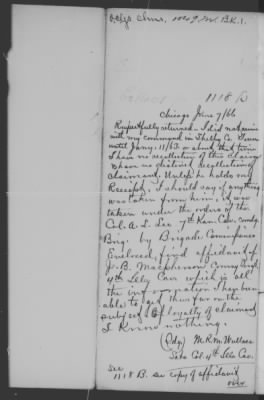 1118 B
Chicago June 7/66
Respectfully returned. I did not arrive
with my command in Shelby Co. Tenn
until Jany. 1/63 or about that time
I have no recollection of this Claim
& have no distinct recollection of
Claimant. Unless he holds my
Receipt, I should say if anything
was taken from him, it was
taken under the orders of the
Col. A. L. Lee 7th Kan. Cav. Comdg
Brig. by Brigade Commissary
Enclosed, find affidavit of
J. B. Macpherson Commy Sergt
4th Ills Cav which is all
the information I have been
able to get thus far on the
subject of loyalty of claimant
I Know nothing.
(Sdg) M. R. M. Wallace
Late Col. 4th Ills Cav.
See
1118 B. see copy of affidavit
over